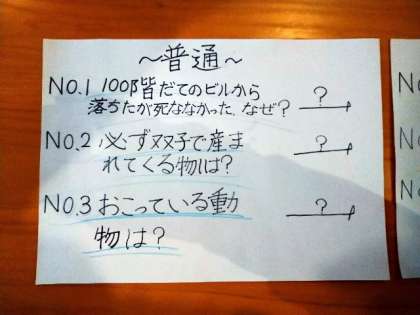 ～普通～
NO.1 100階だてのビルから
落ちたが死ななかった。なぜ? ?
NO.2 必ず双子で産ま
れてくる物は? ?
NO.3 おこっている動
物は? ?
N
N
N